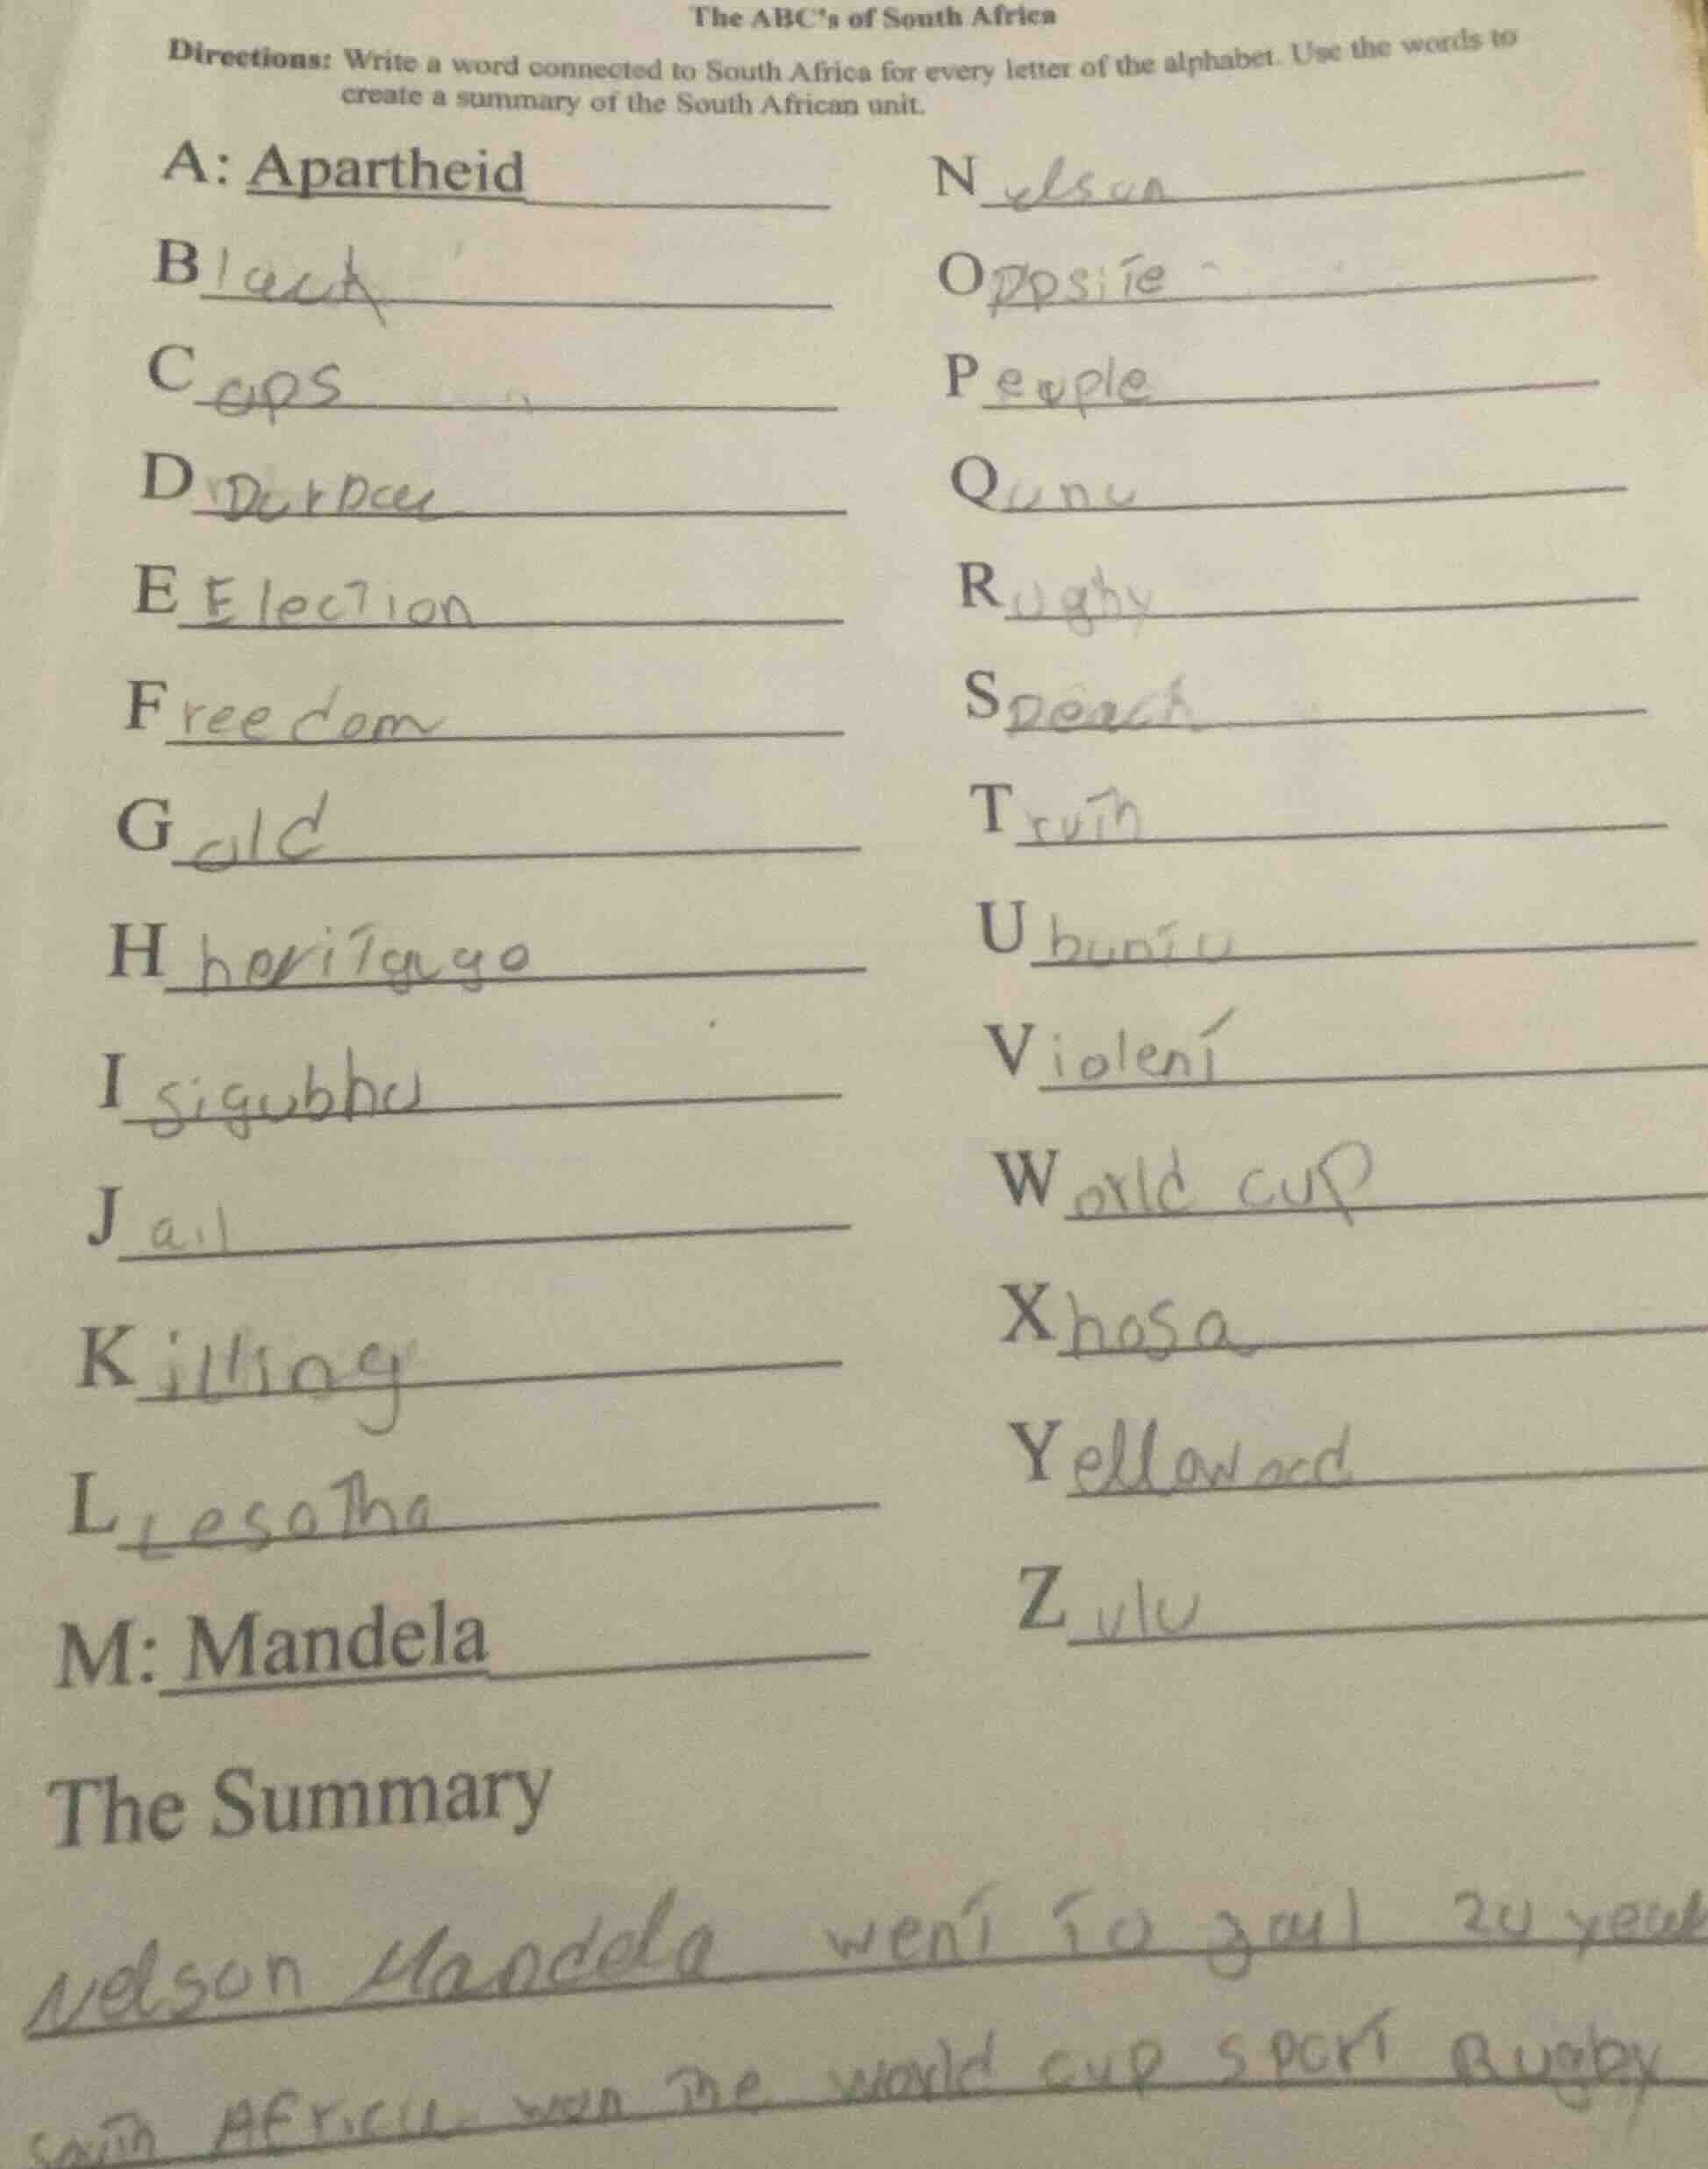 The ABC's of South Africa
Directions: Write a word connected to South Africa for every letter of the alphabet. Use the words to
create a summary of the South African unit.
A: Apartheid
Black
Cops
D
E Election
Freedom
Gold
H heritage
Isigubhu
Jail
Killing
L Lesotho
M: Mandela
Nelson
Oppsite
People
Qunu
Rugby
Speach
Truth
Ubuntu
Violent
World cup
Xhosa
Yellowood
Zulu
The Summary
Nelson Mandela went to jail years
South Africa won the world cup sport Rugby